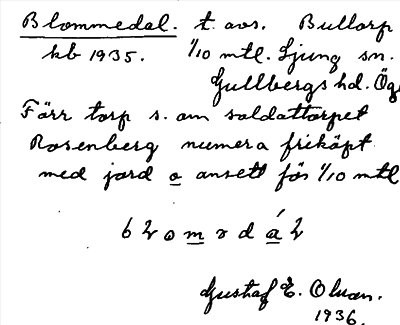 Blommedal. t. avs. Bullorp
kb 1935. 1/10 mtl. Ljung sn.
Gullbergs hd. Ög
Förr torp s. om soldattorpet
Rosenberg numera friköpt
med jord o ansett för 1/10 mtl
Gustaf E. Olson.
1936.